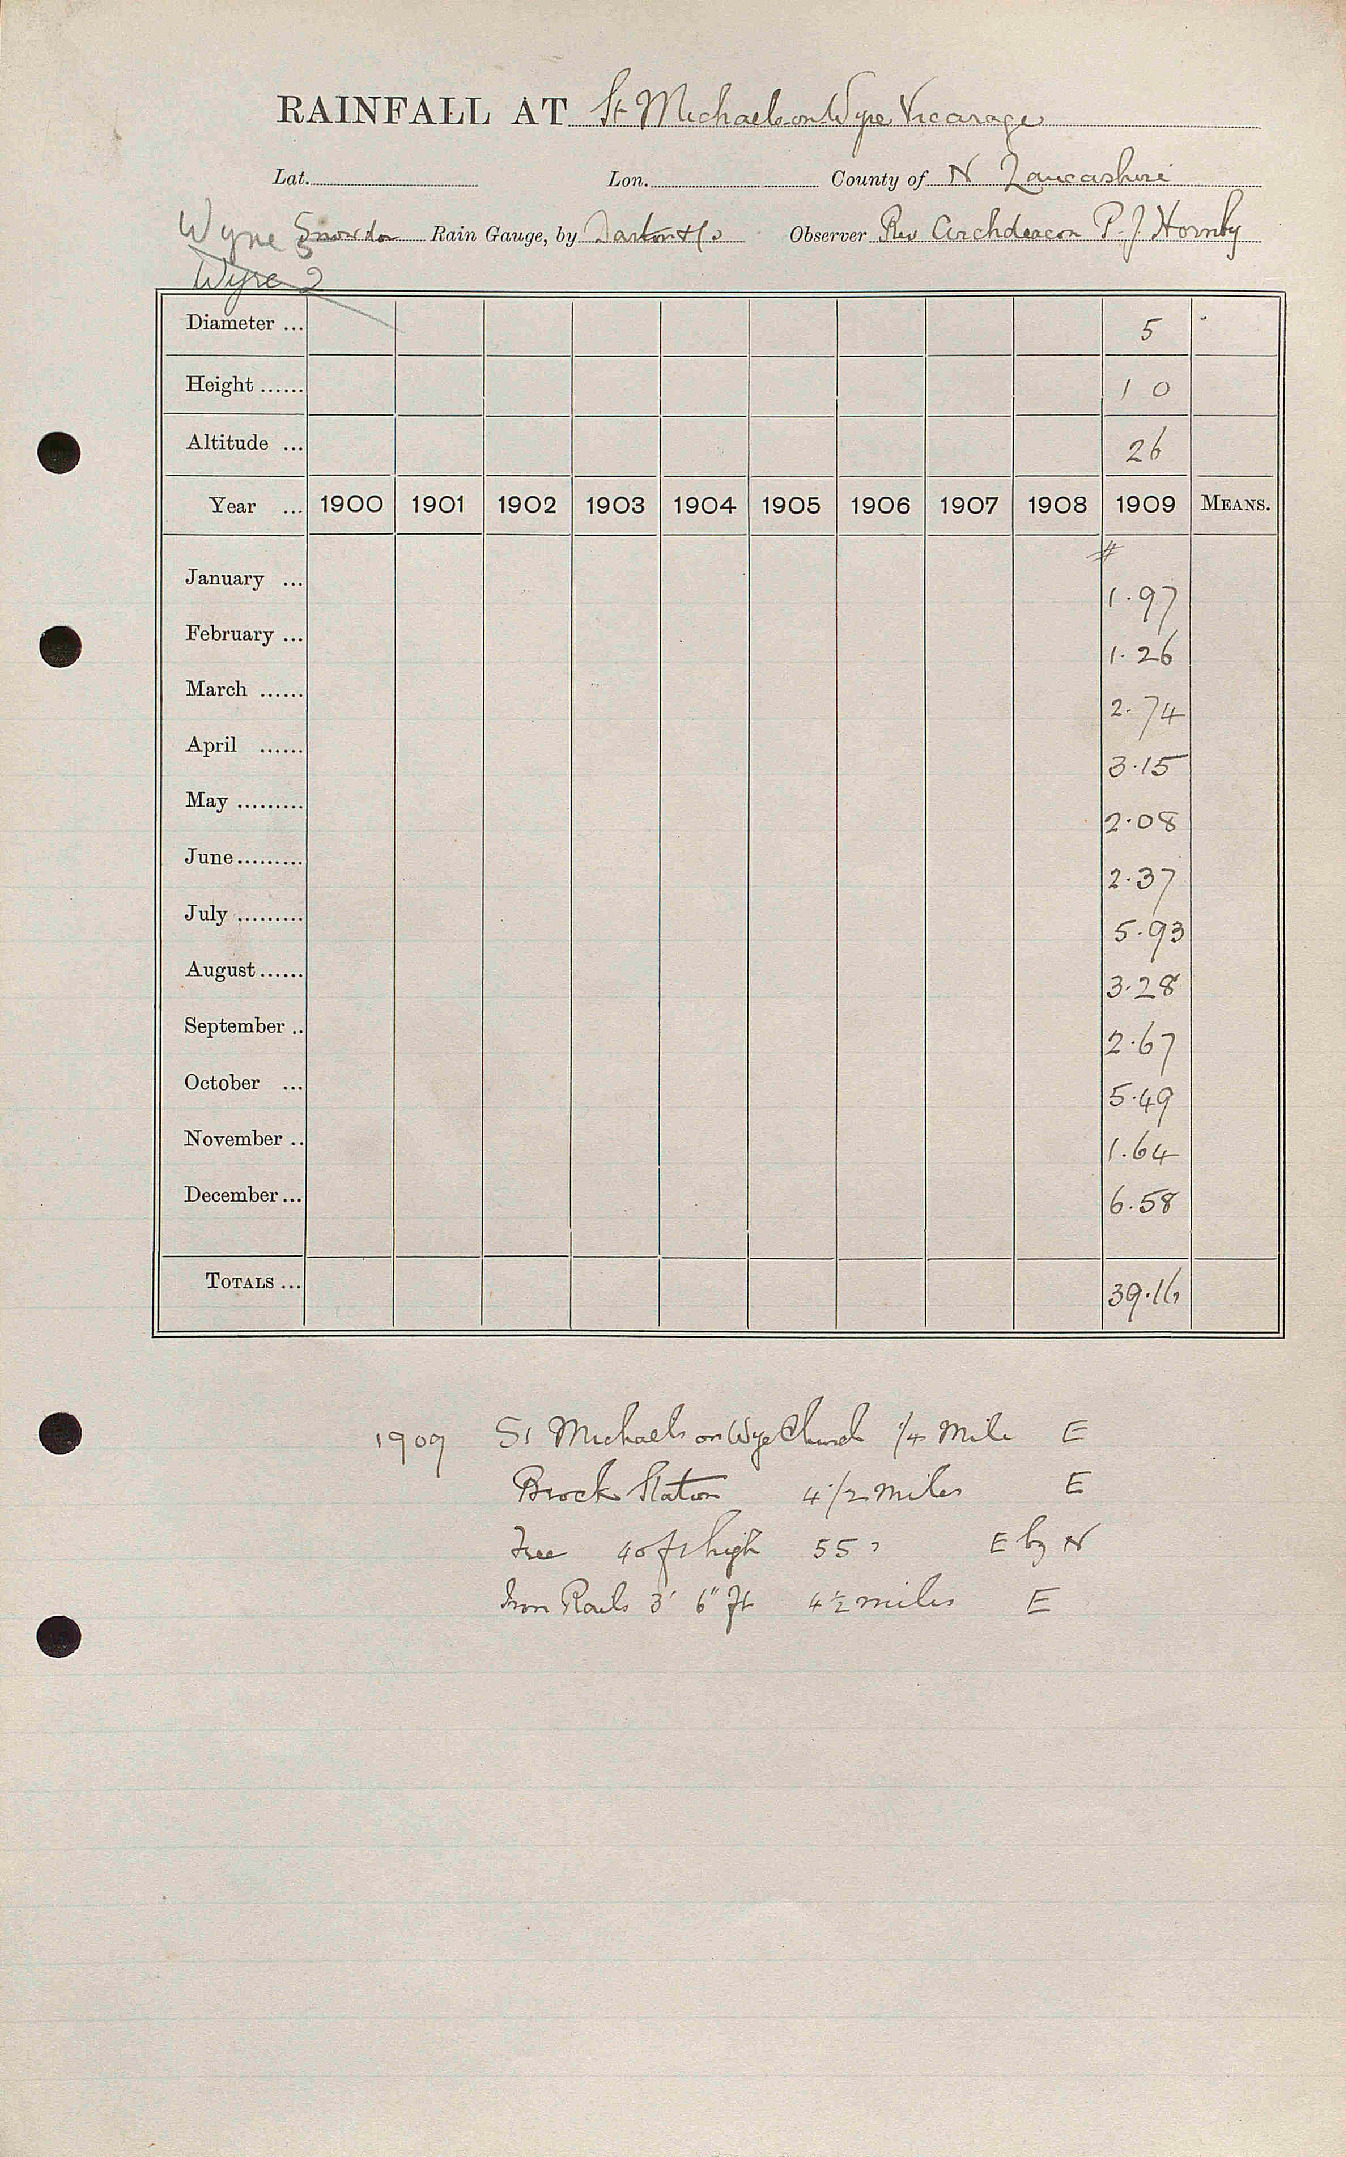 RAINFALL AT St Michaels on Wyre Vicarage
Lat. Lon. County of N Lancashire
Wyre 5 Snowdon Rain Gauge, by Darton & Co Observer Rev Archdeacon P. J. Hornby
Wyre 2
Diameter ... 5
Height ...... 1 0
Altitude ... 26
Year ... 1900 1901 1902 1903 1904 1905 1906 1907 1908 1909 MEANS.
#
January ... 1.97
February ... 1.26
March ...... 2.74
April ...... 3.15
May ......... 2.08
June ......... 2.37
July ......... 5.93
August ...... 3.28
September .. 2.67
October ... 5.49
November .. 1.64
December ... 6.58
TOTALS ... 39.16
1909 St Michaels on Wyre Church 1/4 Mile E
Brock Station 4 1/2 miles E
Tree 40 ft high 55 , E by N
Iron Rails 3' 6" ft 4 1/2 miles E